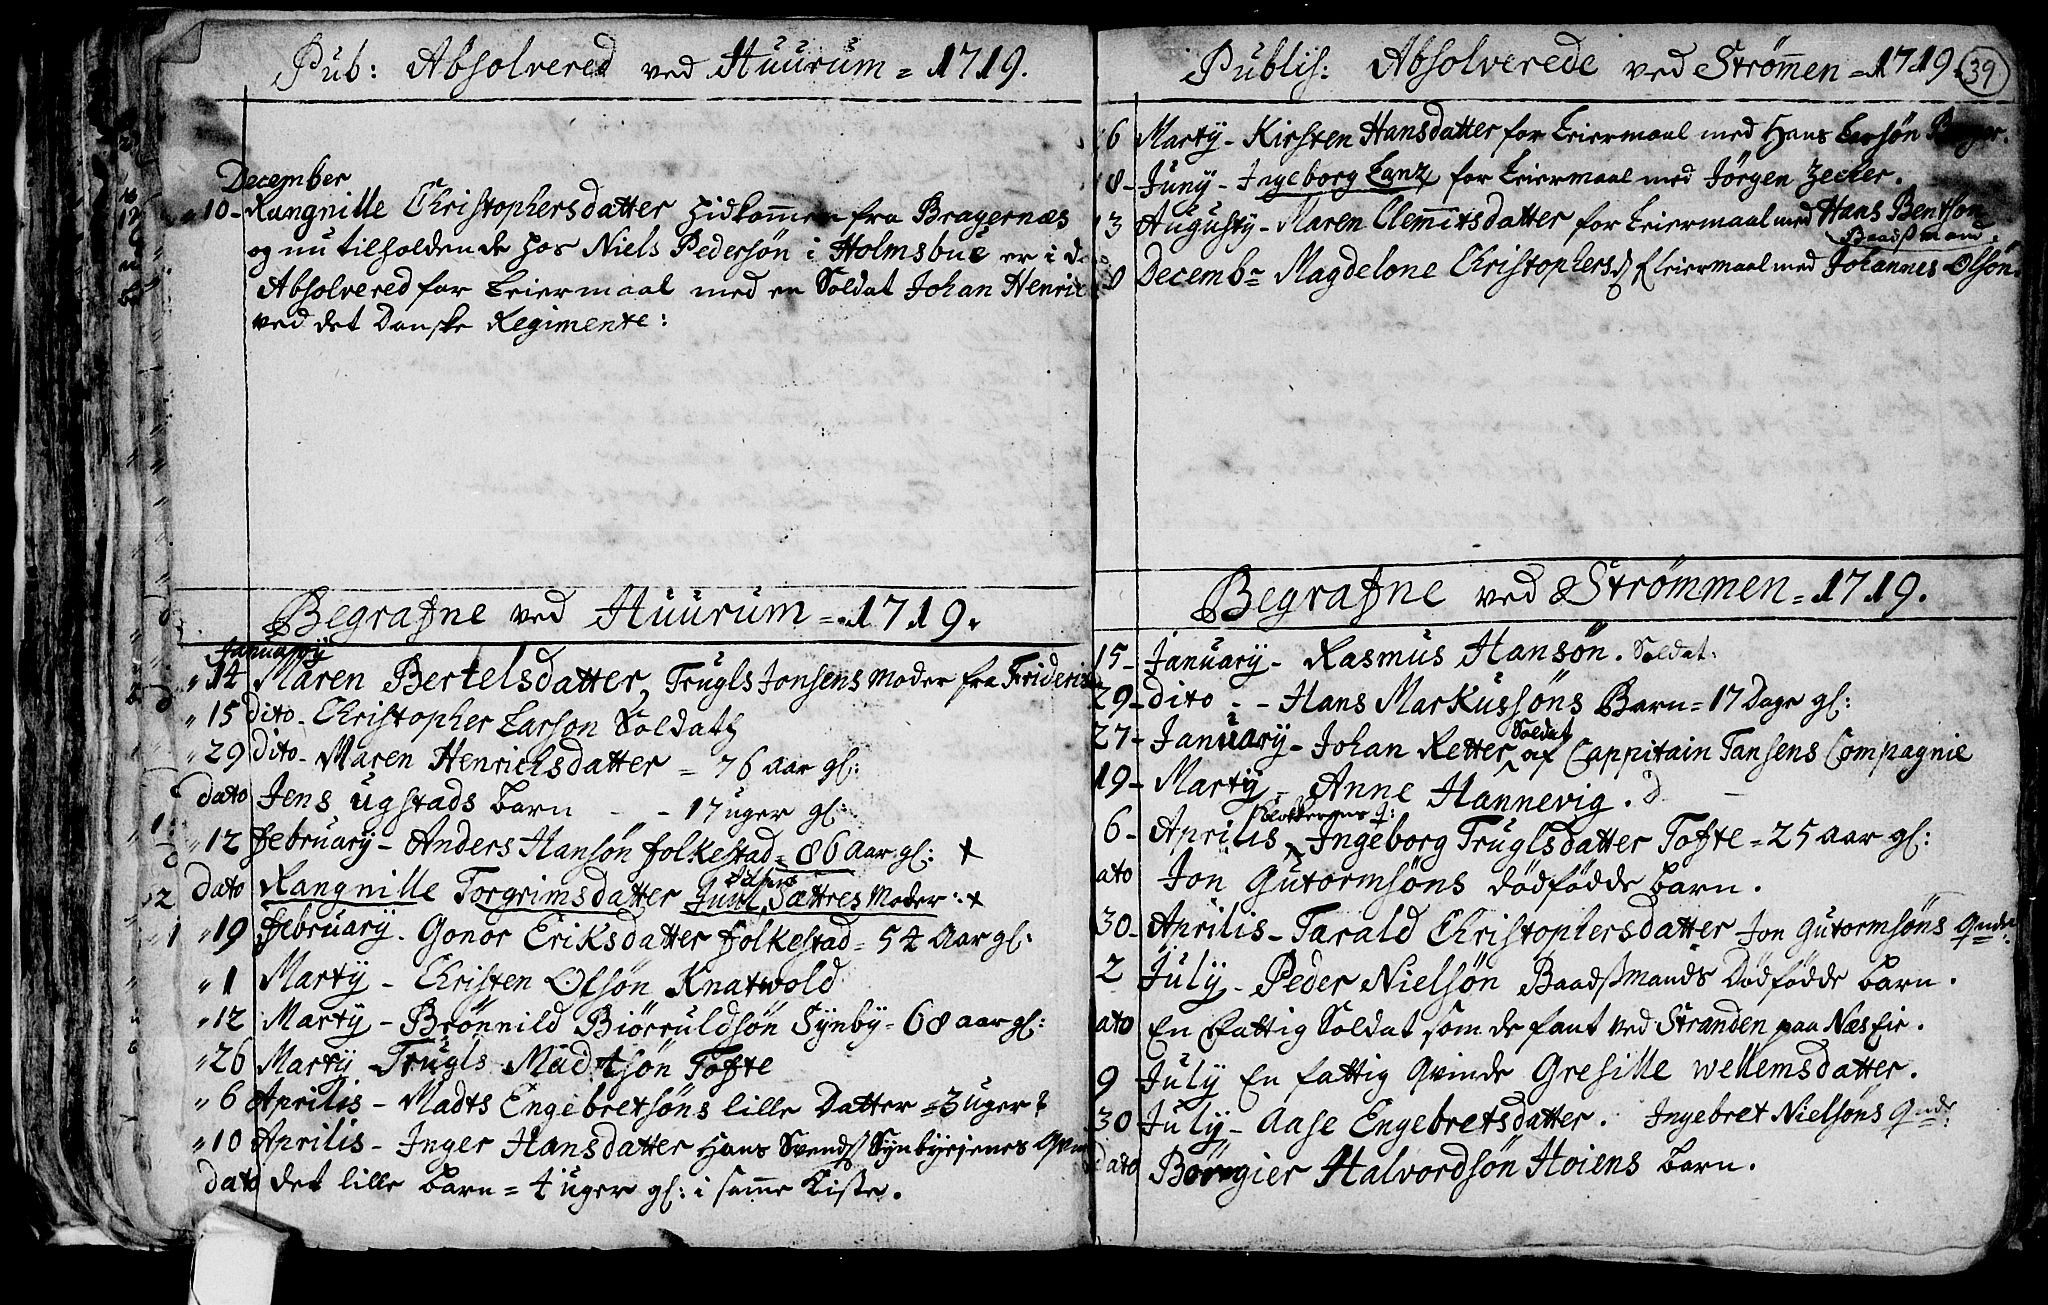 Pub: Absolvered ved Huurum = 1719.
December
10 - Rangnille Christophersdatter hidkommen fra Bragernæs
og nu tilholdende hos Niels Pedersøn i Holmsbue er i
Absolvered for Leiermaal med en Soldat Johan Henric
ved det Danske Regimente:
Begrafne ved Huurum = 1719.
January
14 Maren Bertelsdatter, Trugls Jonsens Moder fra
15 dito - Christopher Larson Soldat
29 dito - Maren Henrichsdatter = 76 aar gl:
dato Jens ugstads barn - - 17 uger gl:
12 february - Anders Hansøn folkestad = 86 Aar gl: +
dato Rangnille Torgrimsdatter Sættres Moder: +
19 february - Gonor Eriksdatter folkestad = 54 Aar gl:
1 Marty - Christen Olsøn Knatwold
12 Marty - Brønnild Biørruldsøn Synby - 68 aar gl:
26 Marty Trugls Madtsøn Tofte
6 Aprilis - Madts Engebretsøns lille Datter = 3 uger
10 Aprilis - Inger Hansdatter Hans
dato det lille barn = 4 uger gl: i samme Kiste.
Publis: Absolverede ved Strømmen = 1719. 39
6 Marty - Kirsten Hansdatter for Leiermaal med Hans Larsøn
8 - Juny - Ingeborg Lanz for Leiermaal med Jørgen Zecker.
3 Augusty - Maren Clemmitsdatter for Leiermaal med Hans Bentson
Baadsmand.
Decemb= Magdelone Christophersd f Leiermaal med Johannes Olsön
Begrafne ved Strømmen = 1719.
15 - January - Rasmus Hansøn. Soldat:
29 - dito - - Hans Markussøns Barn = 17 Dage gl:
Soldat
27 - January - Johan Retter af Cappitain Tansens Compagnie
19 - Marty - Anne Hannevig.
Klokkerens q:
6 - Aprilis - Ingeborg Truglsdatter Tofte = 25 aar gl:
ato Jon Gutormsøns dødfødde barn.
30 - Aprilis - Tarald Christophersdatter Jon Gutormsøns
2 July - Peder Nielsøn Baadsmands Dødfødde barn.
ato En fattig Soldat som de fant ved Stranden paa Næs Eie.
9 July En fattig Qvinde Gresille Wellemsdatter.
30 July - Aase Engebretsdatter. Ingebret Nielsøns
dato Børgier Halvordsøn Høiens barn.